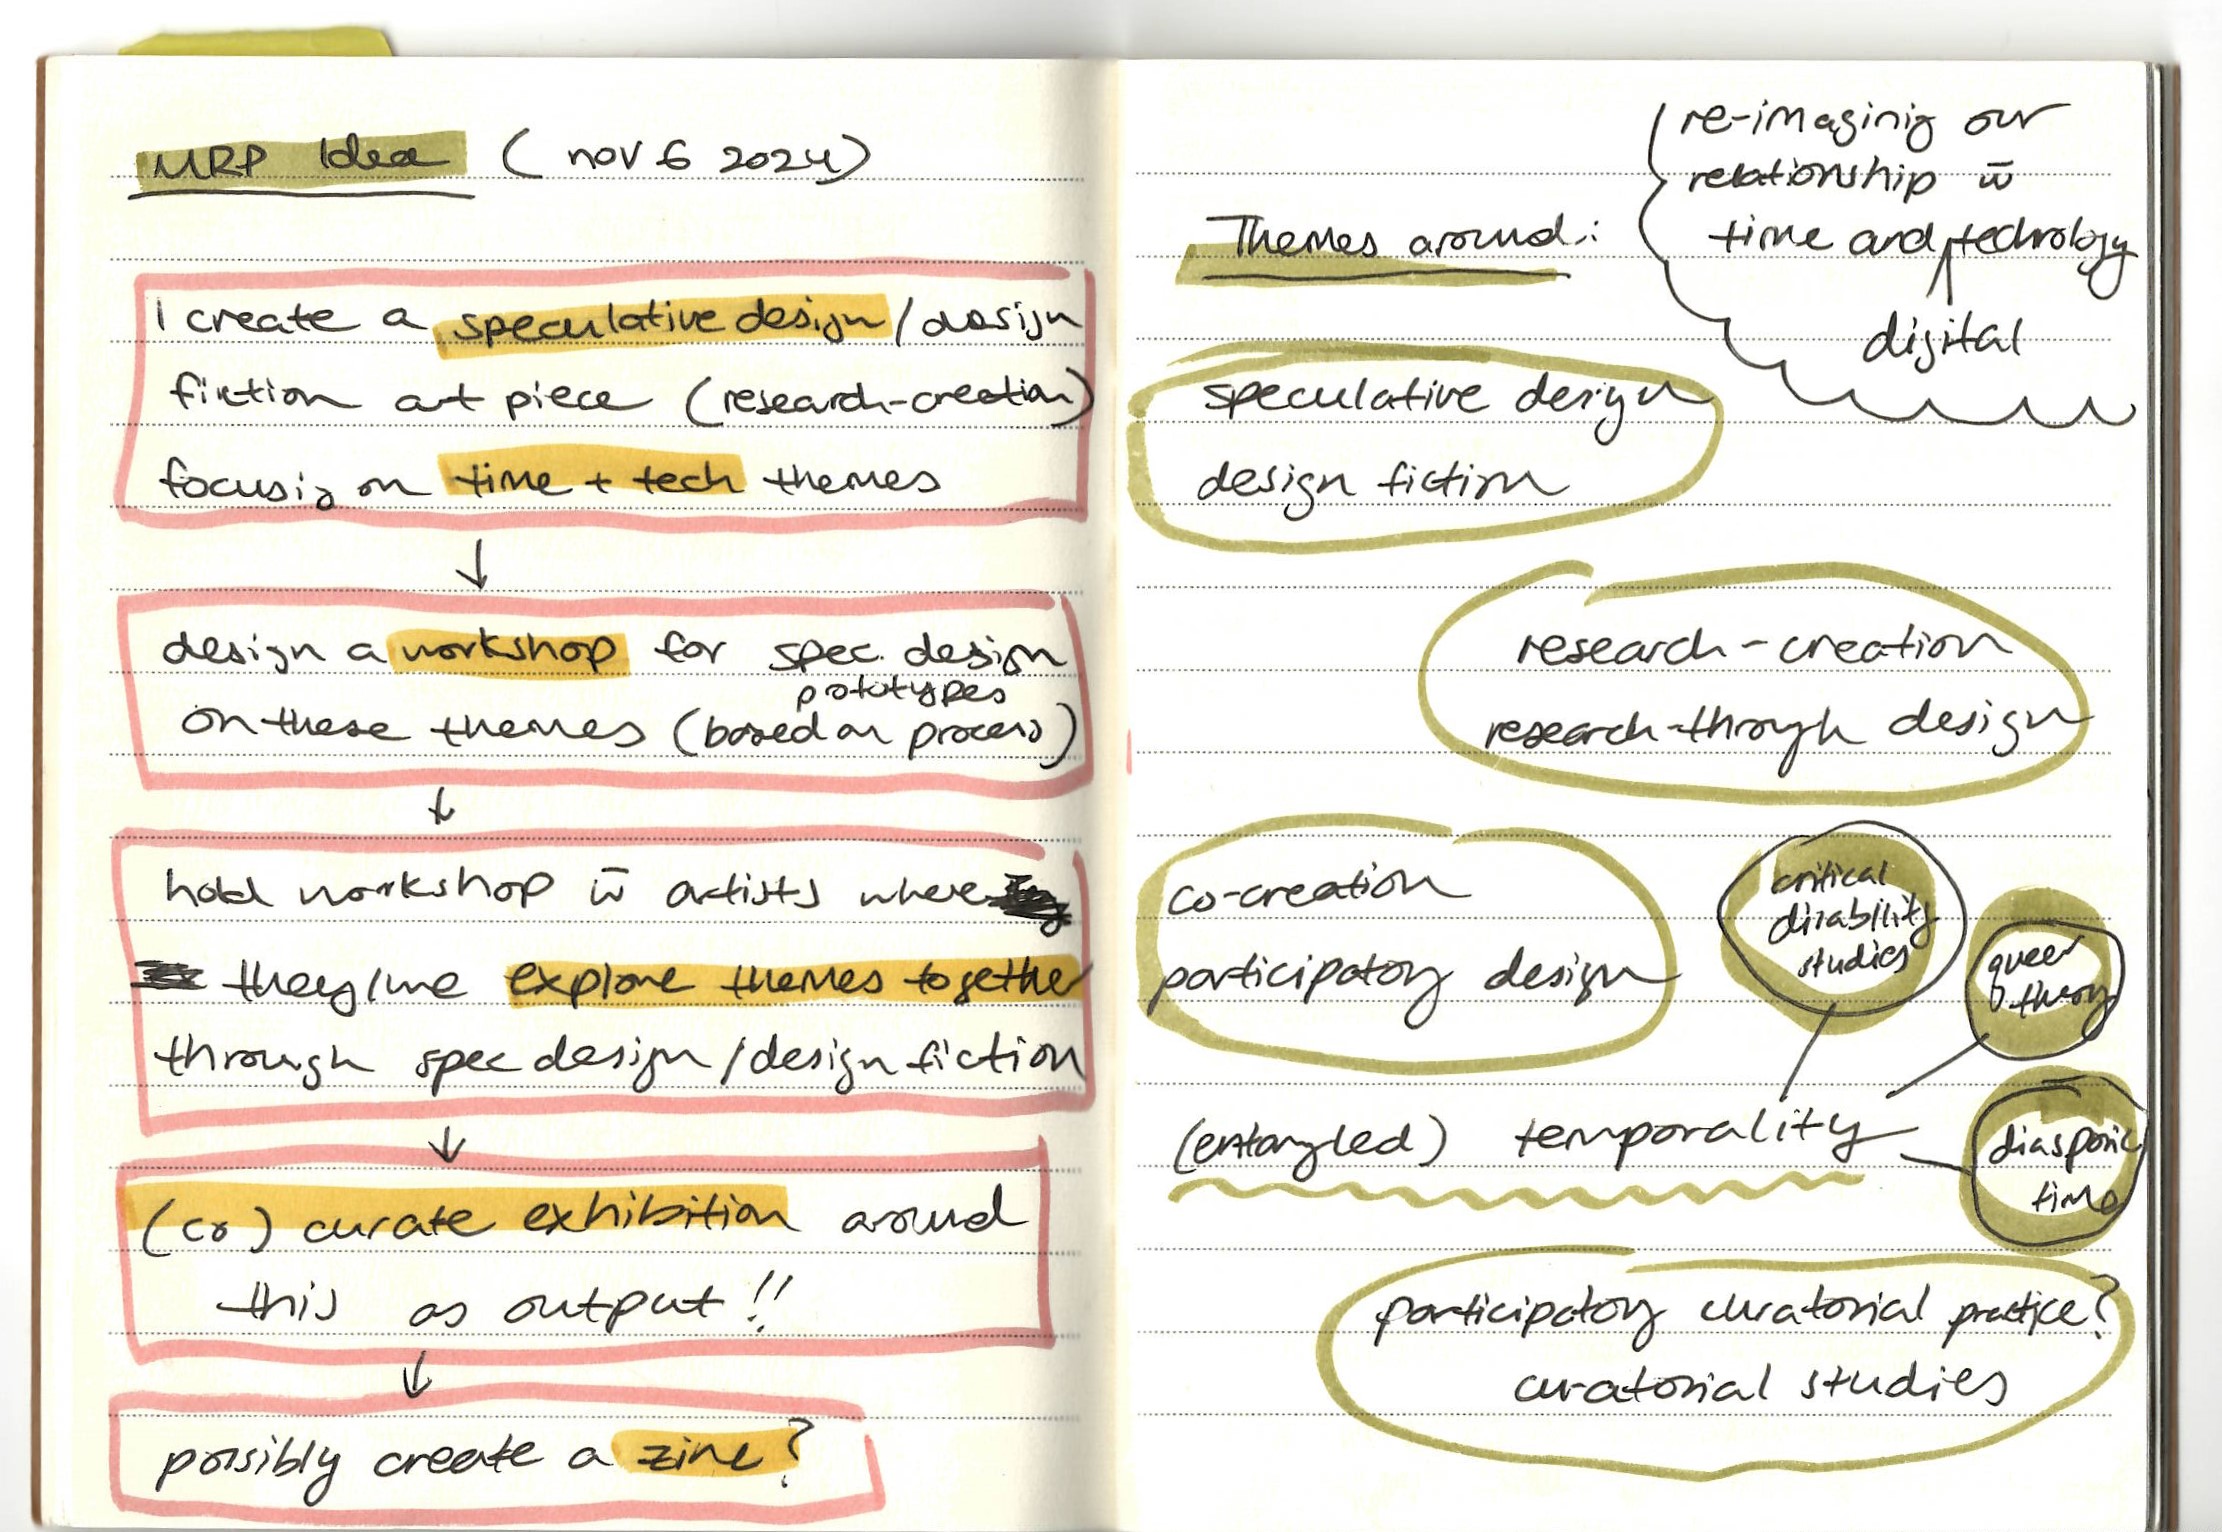 MRP Idea (nov 6 2024)
I create a speculative design / design
fiction art piece (research-creation)
focusing on time + tech themes
↓
design a workshop for spec. design
prototypes
on these themes (based on process)
↓
hold workshop w̄ artists where
they/we explore themes together
through spec design / design fiction
↓
(co) curate exhibition around
this as output!!
↓
possibly create a zine?
re-imagining our
relationship w̄
time and technology
digital
Themes around:
speculative design
design fiction
research-creation
research-through design
co-creation
participatory design
critical
disability
studies
queer
theory
(entangled) temporality
diasporic
time
participatory curatorial practice?
curatorial studies